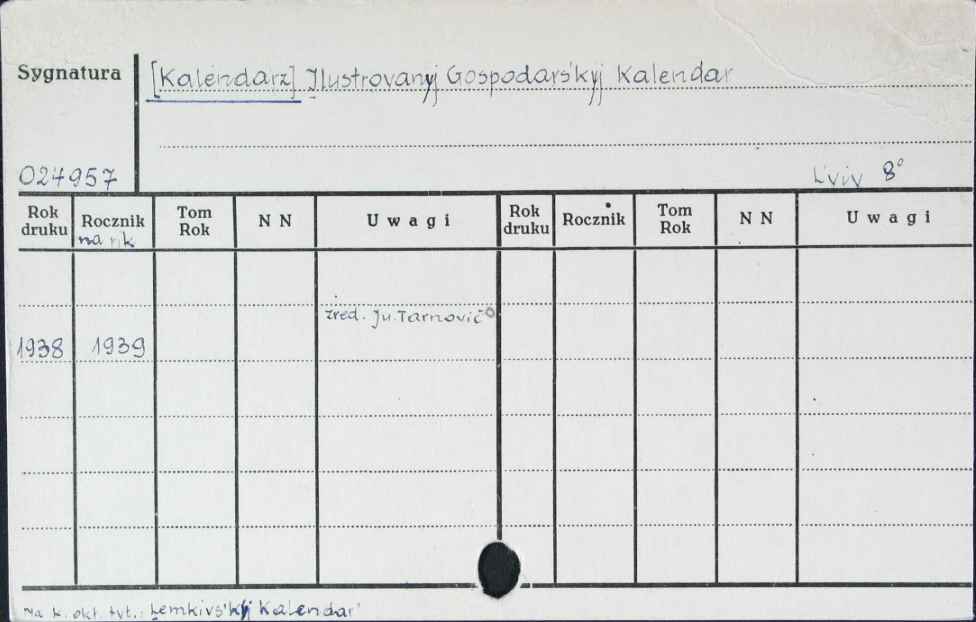 Sygnatura [Kalendarz] Ilustrovanyj Gospodars'kyj Kalendar
024957 L'viv 8°
Rok druku Rocznik na rk Tom Rok N N Uwagi Rok druku Rocznik Tom Rok N N Uwagi
zred. Ju. Tarnovič
1938 1939
Na k. okł. tyt.: Łemkivs'kyj Kalendar'